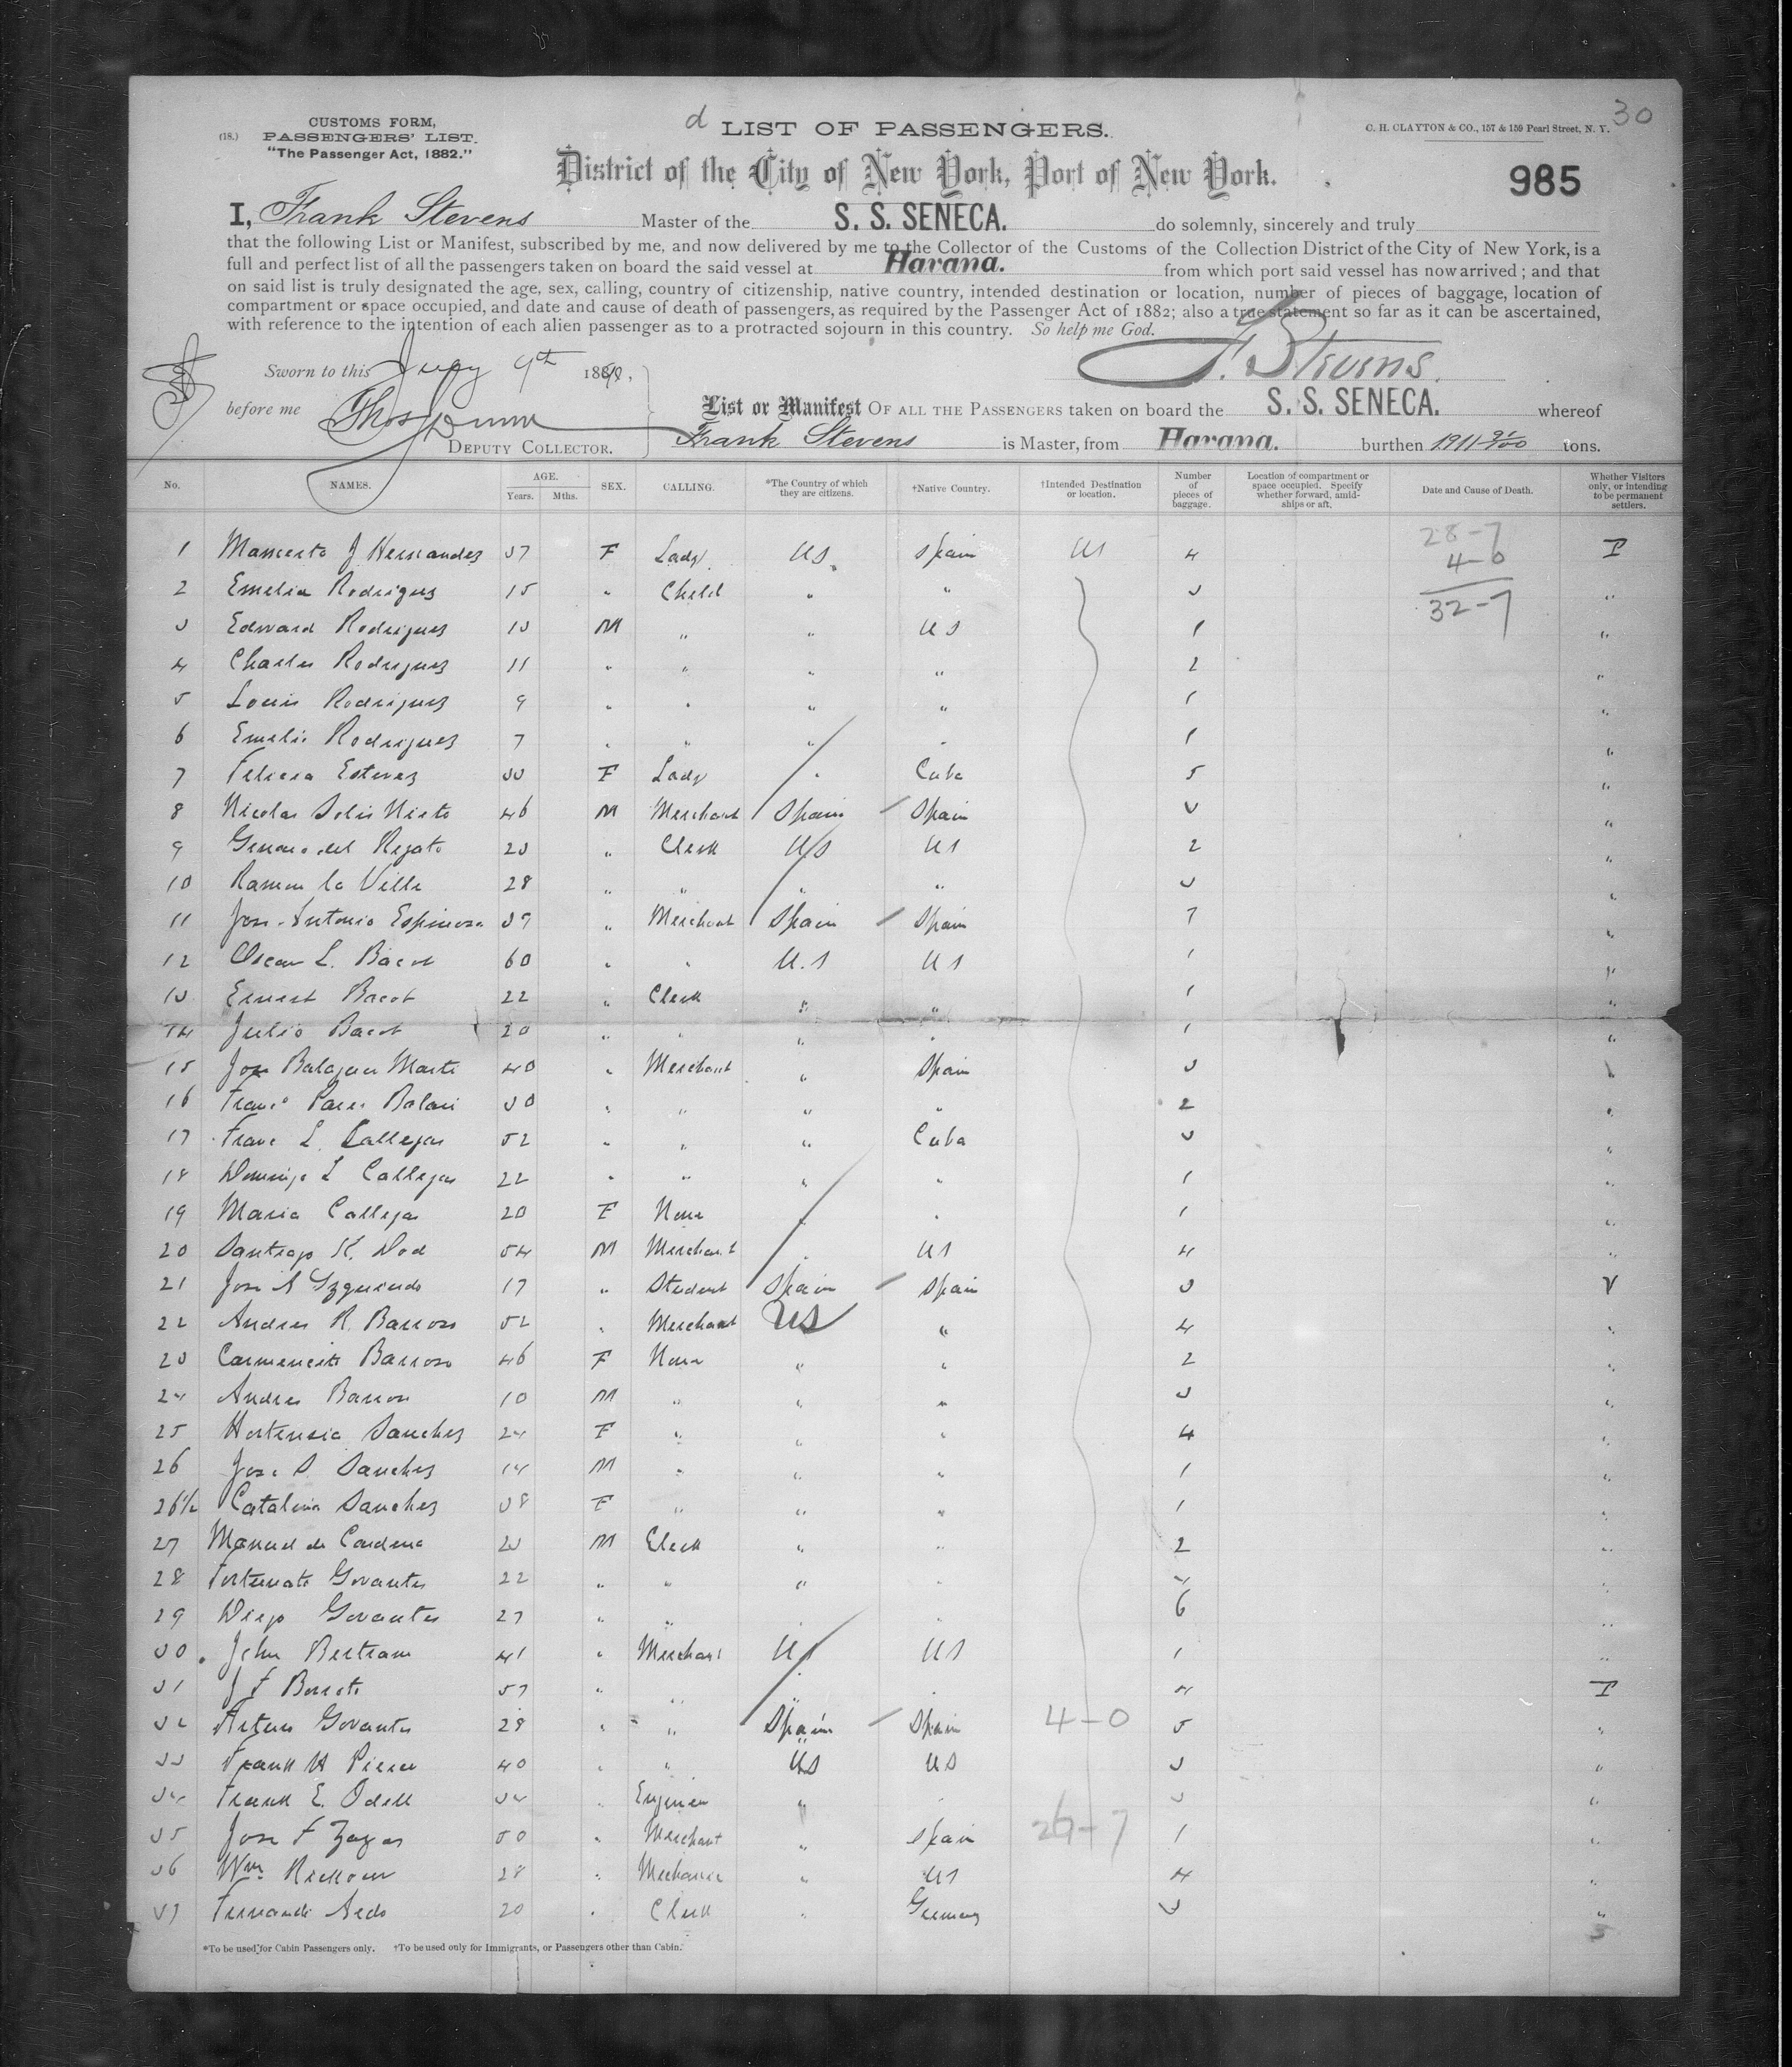 30
d LIST OF PASSENGERS.
CUSTOMS FORM,
(18.) PASSENGERS' LIST.
"The Passenger Act, 1882."
C. H. CLAYTON & CO., 157 & 159 Pearl Street, N. Y.
District of the City of New York, Port of New York.
985
I, Frank Stevens Master of the S. S. SENECA. do solemnly, sincerely and truly
that the following List or Manifest, subscribed by me, and now delivered by me to the Collector of the Customs of the Collection District of the City of New York, is a
full and perfect list of all the passengers taken on board the said vessel at Havana. from which port said vessel has now arrived; and that
on said list is truly designated the age, sex, calling, country of citizenship, native country, intended destination or location, number of pieces of baggage, location of
compartment or space occupied, and date and cause of death of passengers, as required by the Passenger Act of 1882; also a true statement so far as it can be ascertained,
with reference to the intention of each alien passenger as to a protracted sojourn in this country. So help me God.
Sworn to this 9th F. Stevens.
before me Thos Dunn
DEPUTY COLLECTOR.
List or Manifest OF ALL THE PASSENGERS taken on board the S. S. SENECA. whereof
Frank Stevens is Master, from Havana. burthen 1911 tons.
No. NAMES. AGE. Years. Mths. SEX. CALLING. *The Country of which they are citizens. †Native Country. †Intended Destination or location. Number of pieces of baggage. Location of compartment or space occupied. Specify whether forward, amidships or aft. Date and Cause of Death. Whether Visitors only, or intending to be permanent settlers.
28-7
4-0
32-7
1 J Hernandez 37 F Lady US Spain US 4 T
2 Emelia Rodriguez 15 " Child " " 3 "
3 Edward Rodriguez 13 M " " US 1 "
4 Charles Rodriguez 11 " " " " 2 "
5 Louis Rodriguez 9 " " " " 1 "
6 Emelio Rodriguez 7 " " " " 1 "
7 Felicia Estevez 33 F Lady " Cuba 5 "
8 Nicolas Solis Nieto 46 M Merchant Spain Spain 3 "
9 Genaro del Regato 23 " Clerk US US 2 "
10 Ramon la Villa 28 " " " " 3 "
11 Jose Antonio Espinosa 39 " Merchant Spain Spain 7 "
12 Oscar L. Bacot 60 " " U.S US 1 "
13 Ernest Bacot 22 " Clerk " " 1 "
14 Julio Bacot 20 " " " " 1 "
15 Jose Balaguer Marti 40 " Merchant " Spain 3 "
16 Franco Pares 30 " " " " 2 "
17 Franc L. Callejas 52 " " " Cuba 3 "
18 Domingo L Callejas 22 " " " " 1 "
19 Maria Callejas 20 F None " " 1 "
20 Santiago K. Dod 54 M Merchant " US 4 "
21 Jose A Yzquierdo 17 " Student Spain Spain 3 V
22 Andres R. Barroso 52 " Merchant US " 4 "
23 Barroso 46 F None " " 2 "
24 Andres Barroso 10 M " " " 3 "
25 Hortensia Sanchez 24 F " " " 4 "
26 Jose S. Sanchez 14 M " " " 1 "
26½ Catalina Sanchez 38 F " " " 1 "
27 Manuel de Cardena 23 M Clerk " " 2 "
28 Fortunato Govantes 22 " " " " 4 "
29 Diego Govantes 27 " " " " 6 "
30 John Bertram 41 " Merchant US US 1 "
31 J F 57 " " " " 4 T
32 Arturo Govantes 28 " " Spain Spain 4-0 5 "
33 Frank H Pierce 40 " " US US 3 "
34 Frank E. Odell 34 " Engineer " " 3 "
35 Jose F Zayas 50 " Merchant " Spain 1 "
36 Wm 28 " Mechanic " US 4 "
37 Fernando Aedo 20 " Clerk " Germany 3 "
*To be used for Cabin Passengers only. †To be used only for Immigrants, or Passengers other than Cabin.